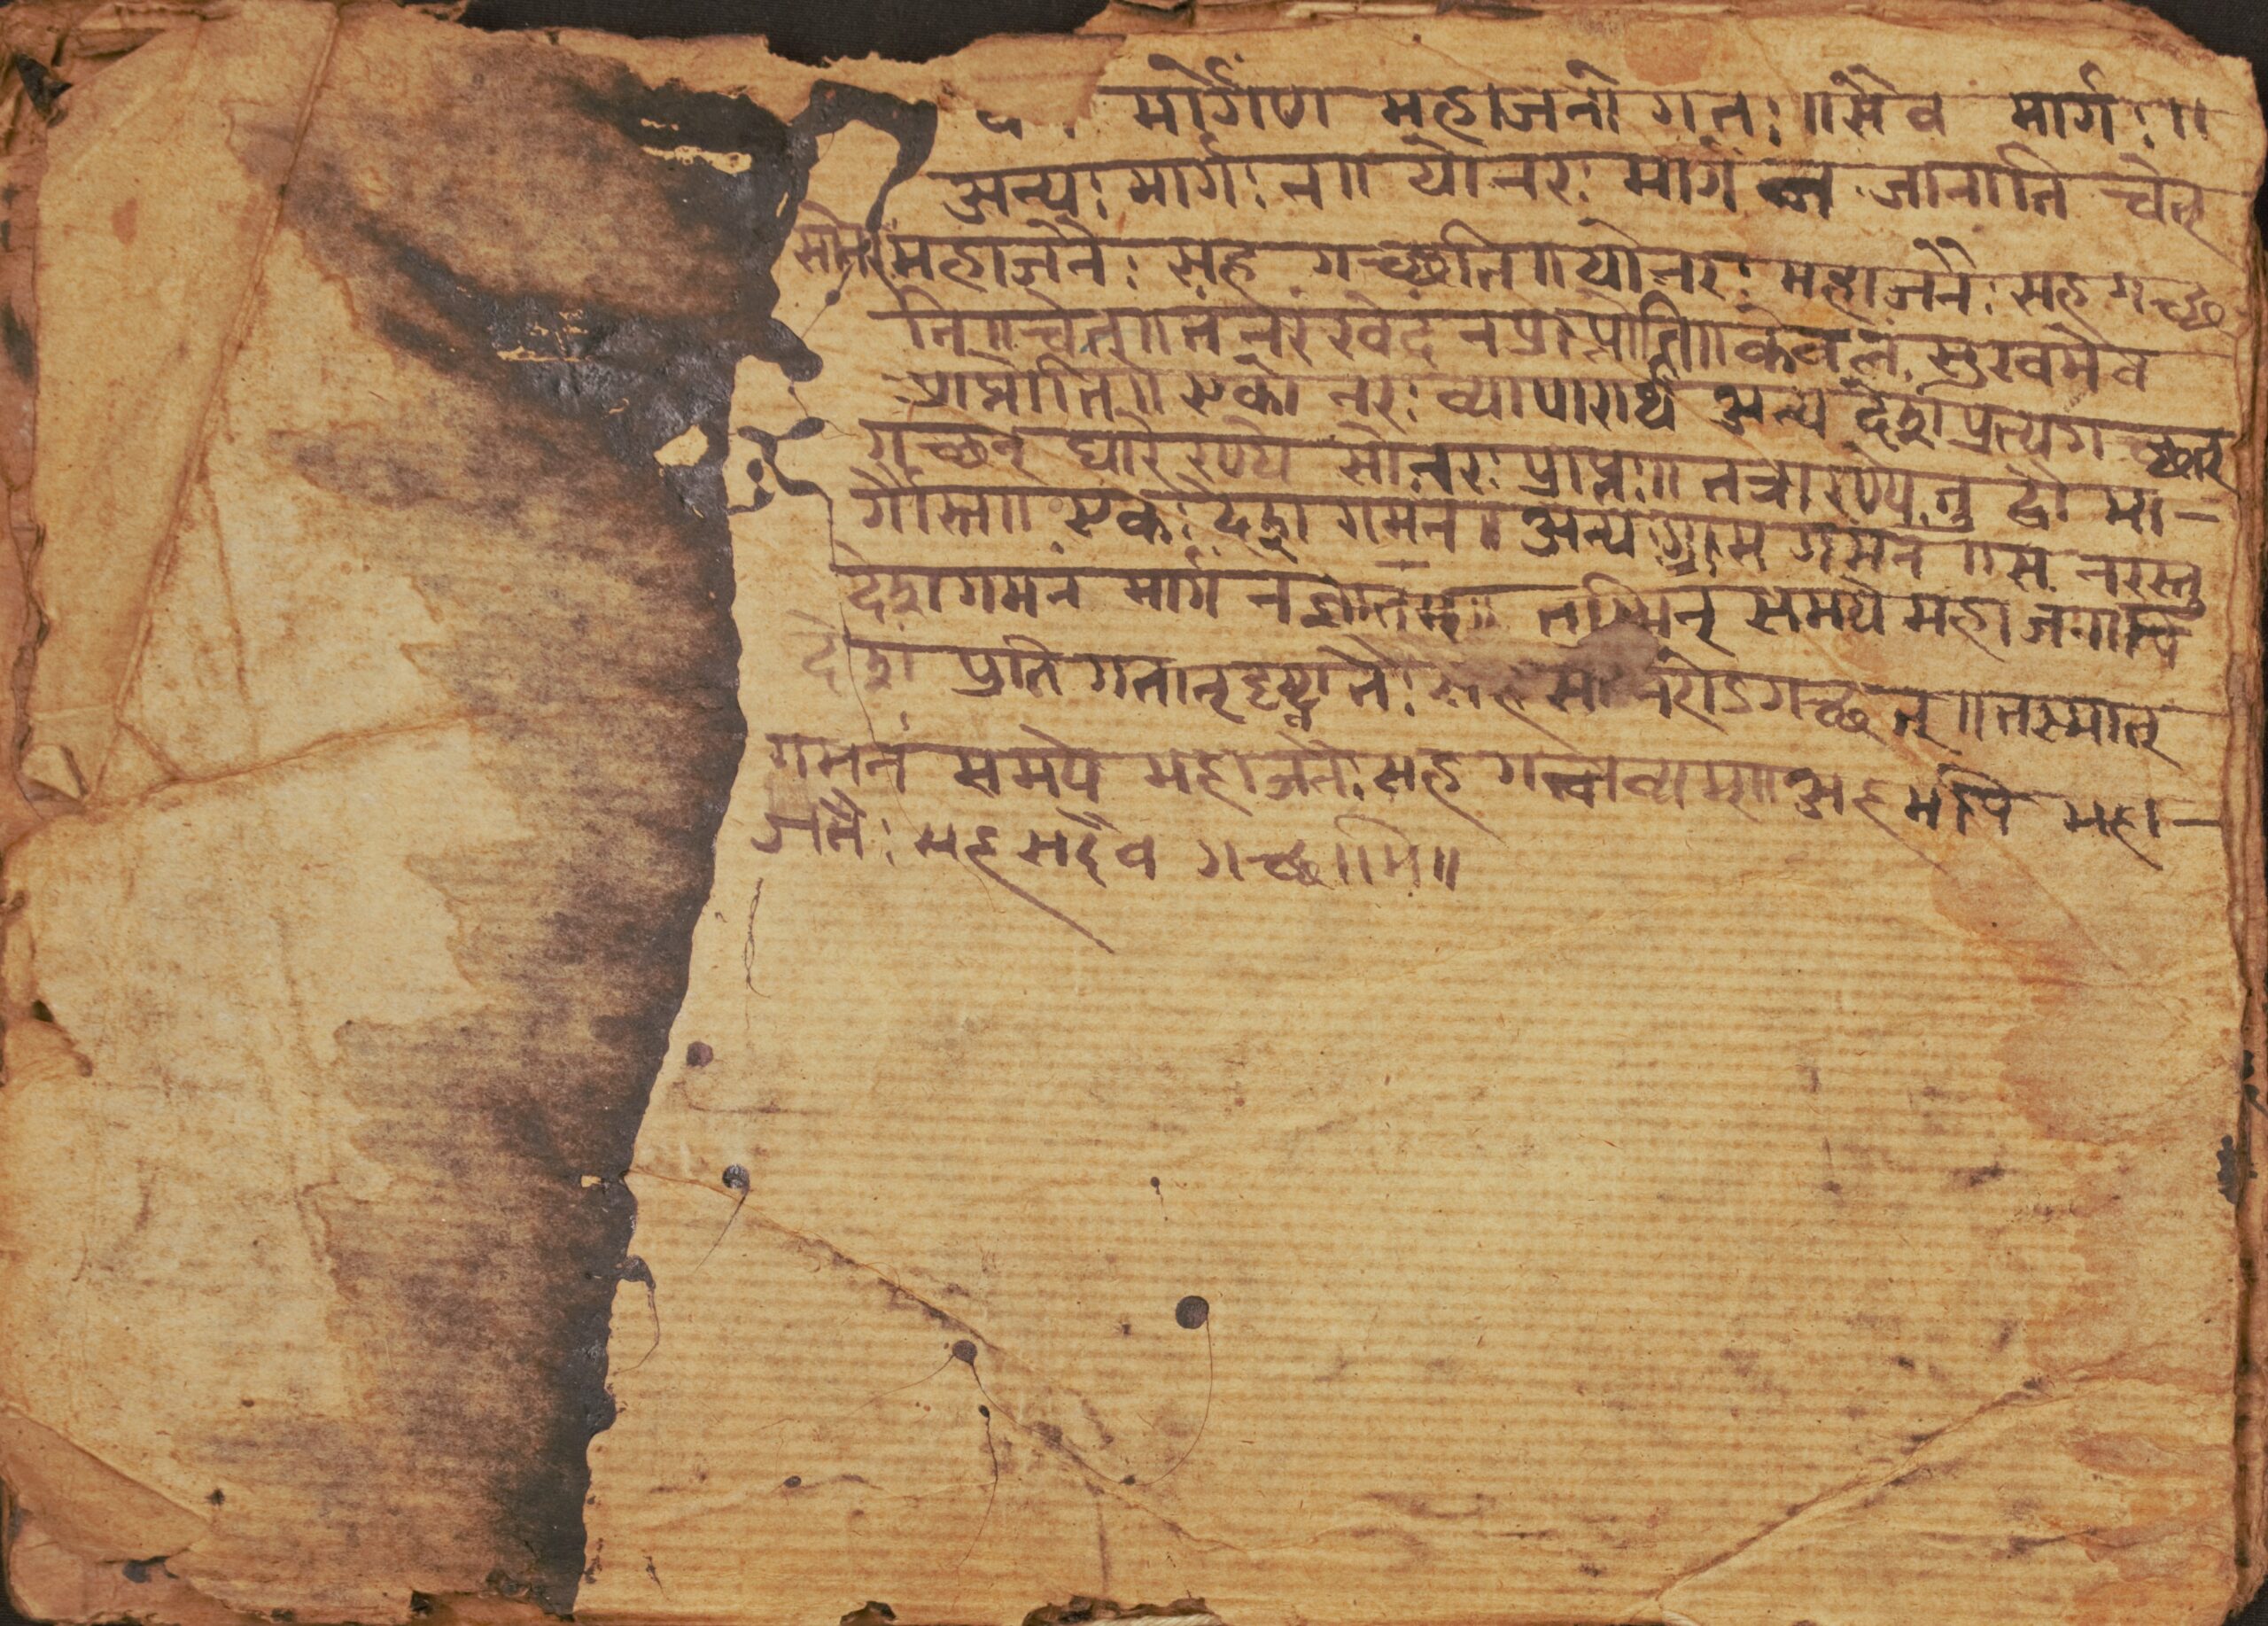 मार्गेण महाजनो गतः ॥ सैव मार्गः ॥
अन्यः मार्गः न ॥ यो नरः मार्गं न जानाति चेत्
सोनरः महाजनैः सह गच्छति ॥ यो नरः महाजनैः सह गच्छ
ति ॥ चेत् ॥ तं नरं खेदं न प्राप्नोति ॥ केवलं सुखमेव
प्राप्नोति ॥ एको नरः व्यापारार्थं अन्य देशं प्रत्यग
गच्छन् घोर रण्ये सो नरः प्राप्तः ॥ तत्रारण्ये तु द्वौ मा-
र्गौ स्तः ॥ एकः देश गमनं ॥ अन्य ग्राम गमनं ॥ स नरस्तु
देशगमनं मार्गं न ज्ञातम् ॥ तस्मिन् समये महाजनापि
देशं प्रति गतान् दृष्ट्वा तैः सह सो नरोऽगच्छत् ॥ तस्मात्
गमनं समये महाजनैः सह गन्तव्यम् ॥ अहमपि महा-
जनैः सह सदैव गच्छामि ॥